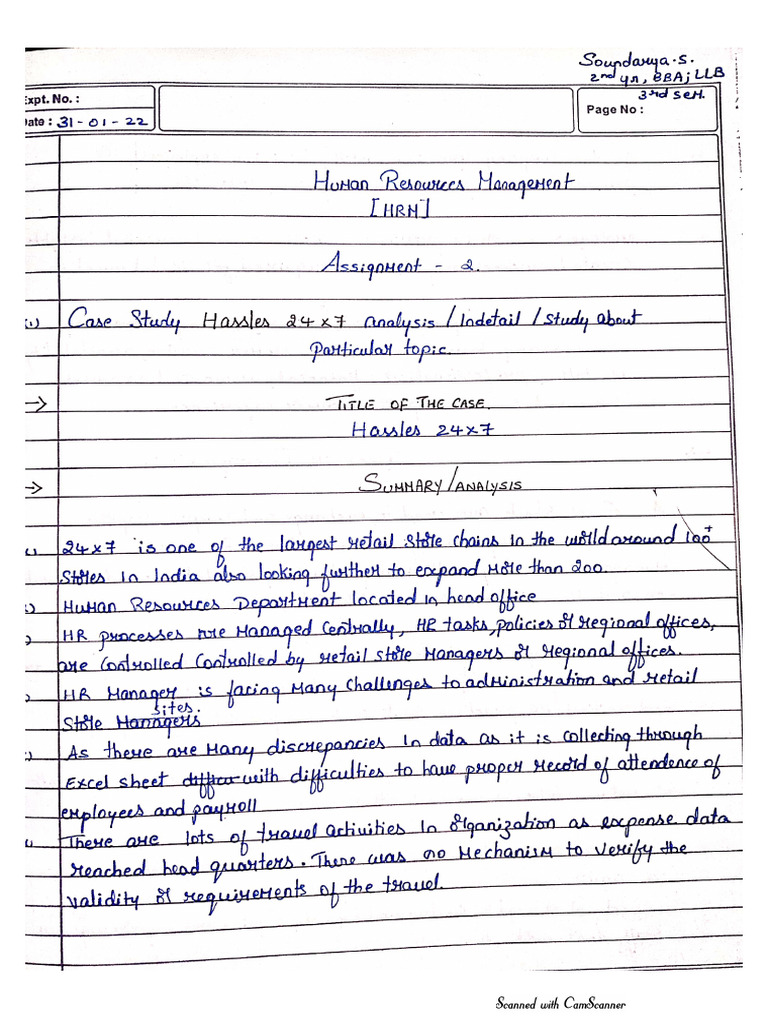 Soundarya.S.
2nd yr, BBA; LLB
3rd sem.
Expt. No. :
Date : 31-01-22
Page No :
Human Resources Management
[HRM]
Assignment - 2.
1) Case Study Hassles 24x7 Analysis/Indetail/Study about
Particular topic.
→ TITLE OF THE CASE.
Hassles 24x7
→ SUMMARY/ANALYSIS
24x7 is one of the largest retail store chains in the world around 100+
stores in India also looking further to expand more than 200.
Human Resources Department located in head office
HR processes are managed centrally, HR tasks, policies of regional offices,
are controlled controlled by retail store managers of regional offices.
HR Manager is facing many challenges to administration and retail
sites.
Store Managers
As there are many discrepancies in data as it is collecting through
Excel sheet with difficulties to have proper record of attendence of
employees and payroll
There are lots of travel activities in organization as expense data
reached head quarters. There was no mechanism to verify the
validity of requirements of the travel.
Scanned with CamScanner